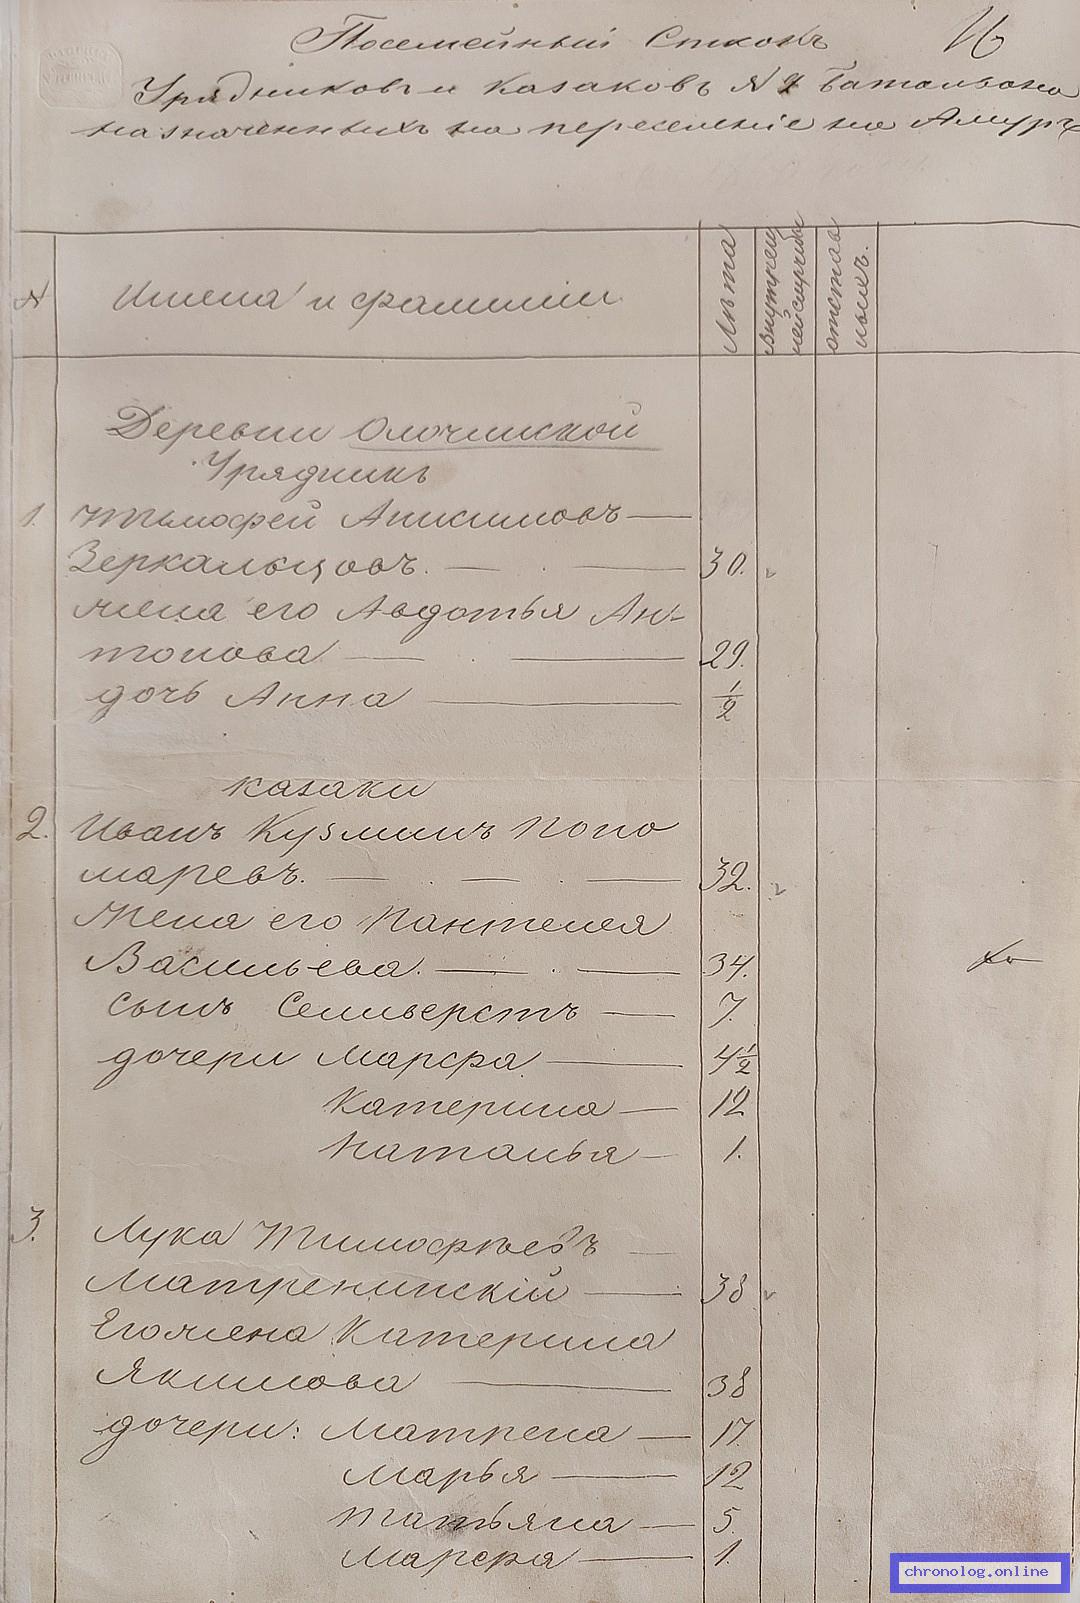 Посемейный Списокъ
Урядниковъ и Казаковъ № Баталіона
назначенныхъ на переселеніе на Амуръ
№
Имена и фамиліи
Лѣта
внутрен
ней службы
отстав
ныхъ.
Деревни Олочинской
Урядникъ
1. Тимофей Анисимовъ —
Зеркальцовъ. — — 30.
жена его Авдотья Ан-
тонова — — 29.
дочь Анна — 1/2
казаки
2. Иванъ Кузминъ Поно
маревъ. — — — 32.
Жена его Пантелея
Васильева. — — 34.
сынъ Селиверстъ — 7.
дочери Марфа — 4 1/2
Катерина — 12
Наталья — 1.
3. Лука Тимофѣевъ —
Матренинскій — 38
Его жена Катерина
Якимова — 38
дочери: Матрена — 17.
Марья — 12
Татьяна — 5.
Марфа — 1.
chronolog.online